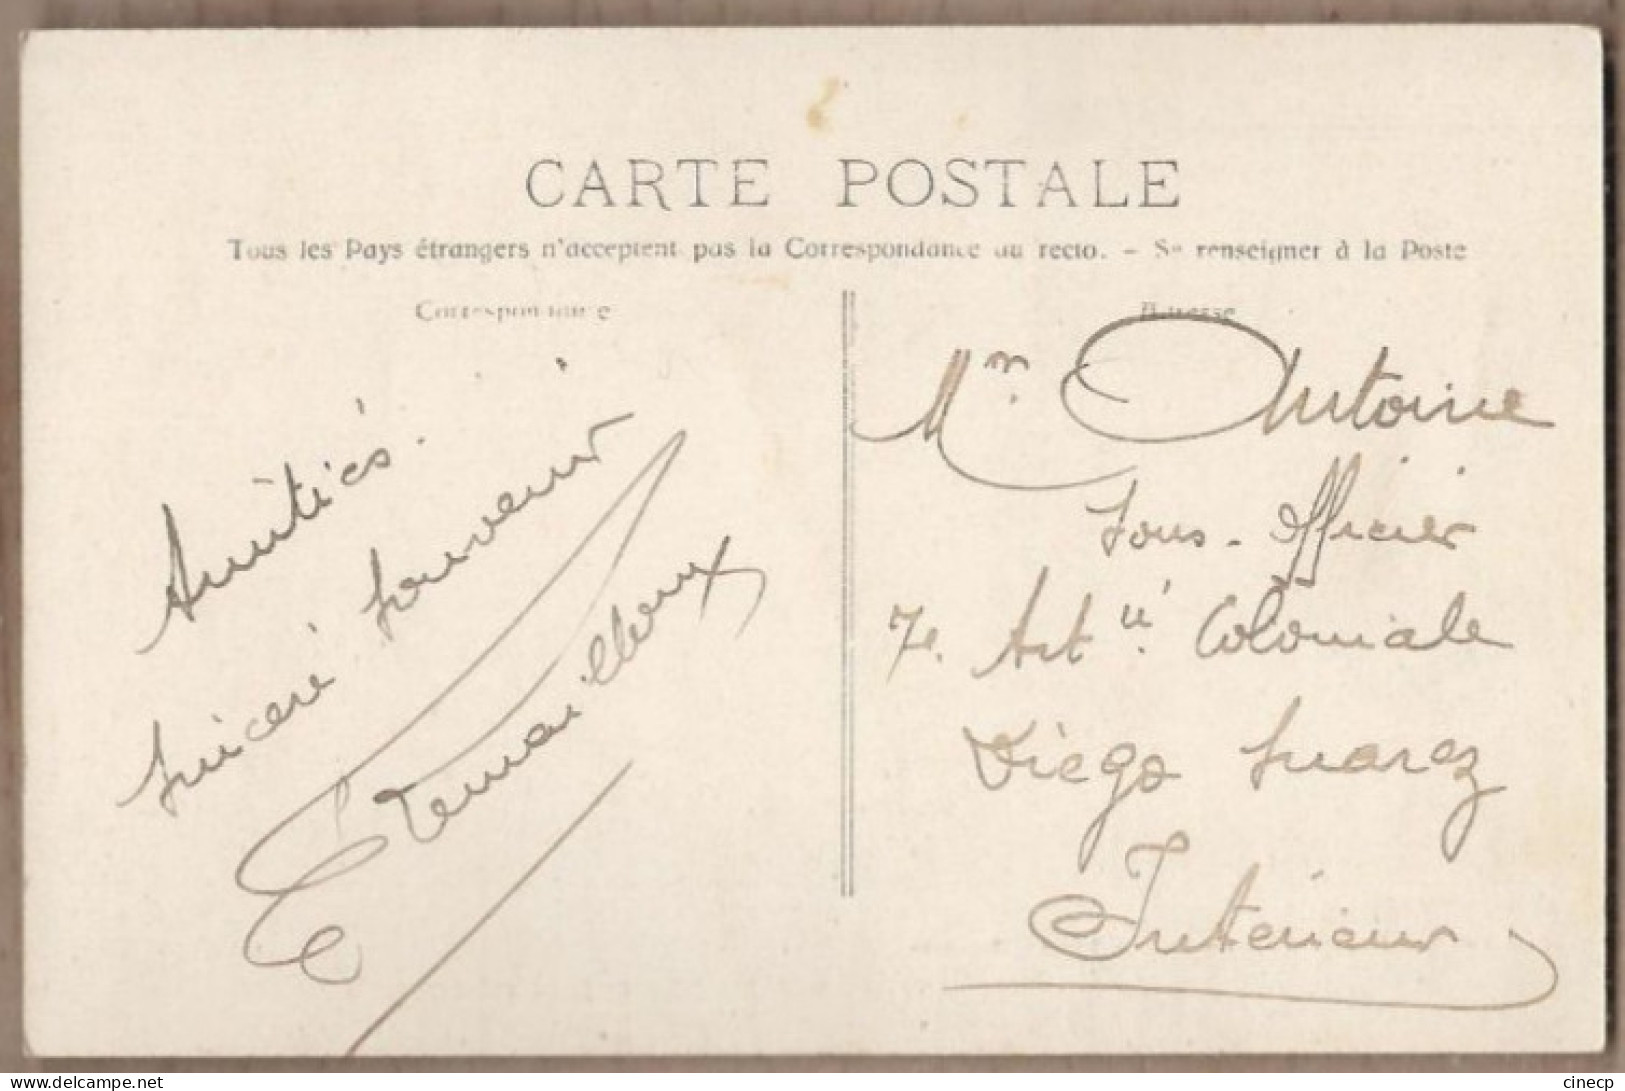 CARTE POSTALE
Tous les Pays étrangers n'acceptent pas la Correspondance au recto. – Se renseigner à la Poste
Correspondance
Amitiés.
Sincère souvenir
Adresse
Mr. Antoine
Sous-Officier
7e. Artie. Coloniale
Diego Suarez
Intérieur
delcampe.net
cinecp